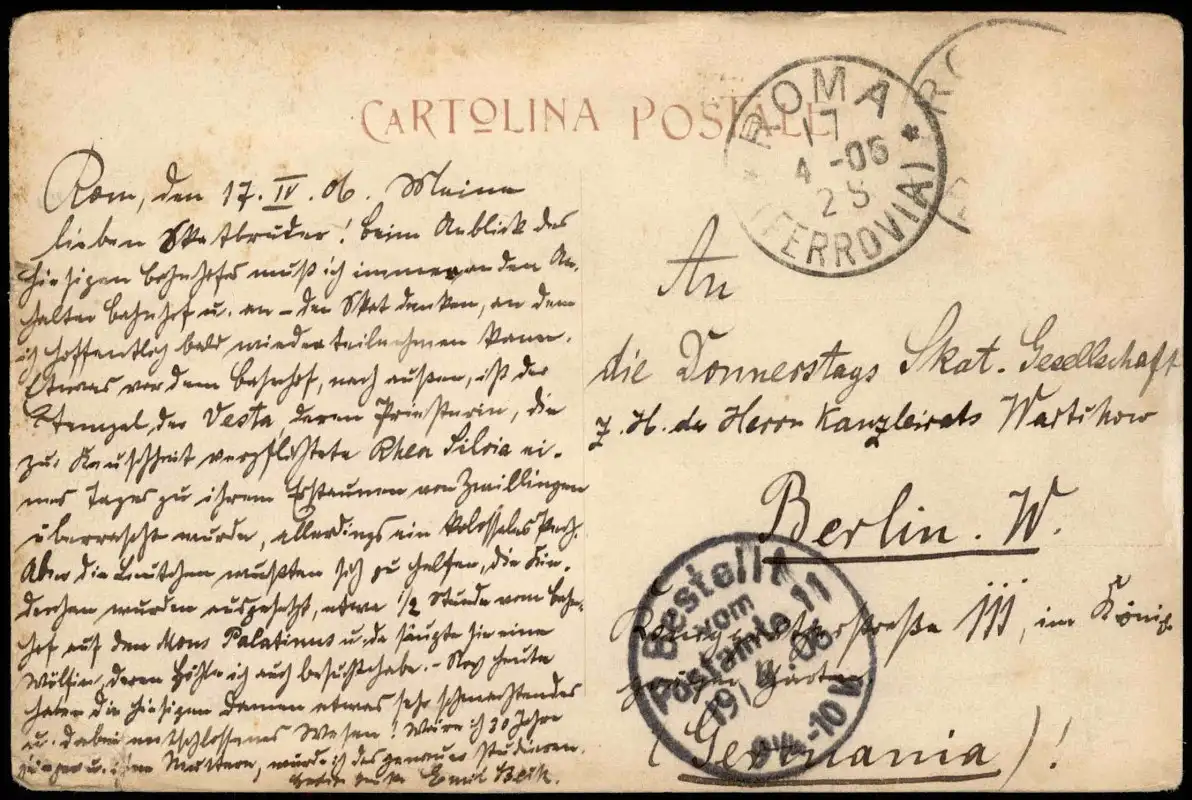 CARTOLINA POSTALE
ROMA
17
4-06
2S
(FERROVIA)
RO
Rom, den 17. IV. 06. Meine
lieben Skatbrüder! Beim Anblick des
hiesigen Bahnhofes muß ich immer an den An-
halter Bahnhof u. an – den Skat denken, an dem
ich hoffentlich bald wieder teilnehmen kann.
Etwas vor dem Bahnhof, nach außen, ist der
Tempel der Vesta, deren Priesterin, die
zur Keuschheit verpflichtete Rhea Silvia ei-
nes Tages zu ihrem Erstaunen von Zwillingen
überrascht wurde, allerdings ein kolossales Pech.
Aber die Leutchen wußten sich zu helfen, die Kin-
derchen wurden ausgesetzt, etwa 1/2 Stunde vom Bahn-
hof auf den Mons Palatinus u. da säugte sie eine
Wölfin, deren Höhle ich auch besucht habe. – Noch heute
haben die hiesigen Damen etwas sehr schmachtendes
u. dabei entschlossenes Wesen! Wäre ich 30 Jahre
jünger u. ohne, würde ich das genauer studieren.
Emil
An
die Donnerstags Skat-Gesellschaft
z. H. des Herrn Kanzleirats Wartchow
Berlin. W.
Königgrätzerstraße 111, im König-
grätzer Garten
(Germania)!
Bestellt
vom
Postamte 11
19/4.06
-10 V